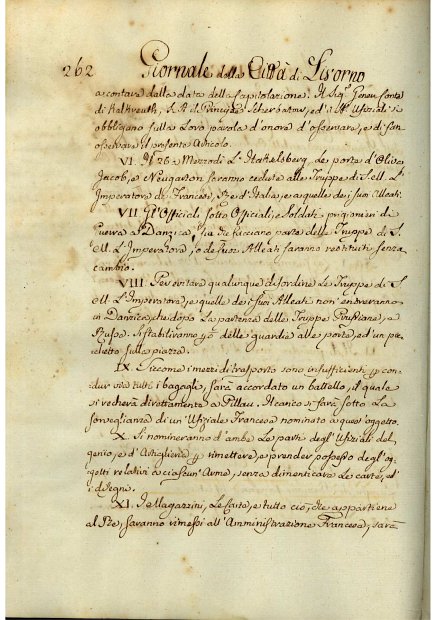 262 Giornale della Città di Livorno
a contare dalla data della Capitolazione. Il Sig.e Gen. Conte
di Kalkreuth, S. A. il Principe Scherbatow, ed i SS. Uffiziali si
obbligano sulla Loro parola d'onore d'osservare, e di far
osservare il presente Articolo.
VI. Il 26 a Mezzodì L' Hakelsberg, Le porte d'Oliva
Jacob, e Neugarten saranno cedute alle Truppe di S. M. L'
Imperatore de' Francesi, Re d'Italia, e a quelle de i suoi Alleati.
VII. Gl'Officiali, sotto Officiali, e Soldati prigionieri di
Guerra a Danzica, sia che facciano parte delle Truppe di S.
M. L' Imperatore, o de' suoi Alleati saranno restituiti senza
cambio.
VIII. Per evitare qualunque disordine Le Truppe di S.
M. L'Imperatore, e quelle de i suoi Alleati non entreranno
in Danzica, che dopo La partenza delle Truppe Prussiane, e
Russe. Si stabiliranno però delle guardie alle porte, ed un pic=
chetto sulla piazza.
IX. Siccome i mezzi di trasporto sono insufficienti per con
dur via tutti i bagagli, sarà accordato un battello, il quale
si recherà direttamente a Pillau. Il carico si farà sotto La
sorveglianza di un' Uffiziale Francese nominato a quest'oggetto.
X. Si nomineranno d'ambe Le parti degl' Ufiziali del
genio, e d'Artiglieria per rimettere, e prender possesso degl'og=
getti relativi a ciascun' Arme, senza dimenticare Le carte, ed
i disegni.
XI. I Magazzini, Le Casse, e tutto ciò, che appartiene
al Re, saranno rimessi all'Amministrazione Francese, sarà